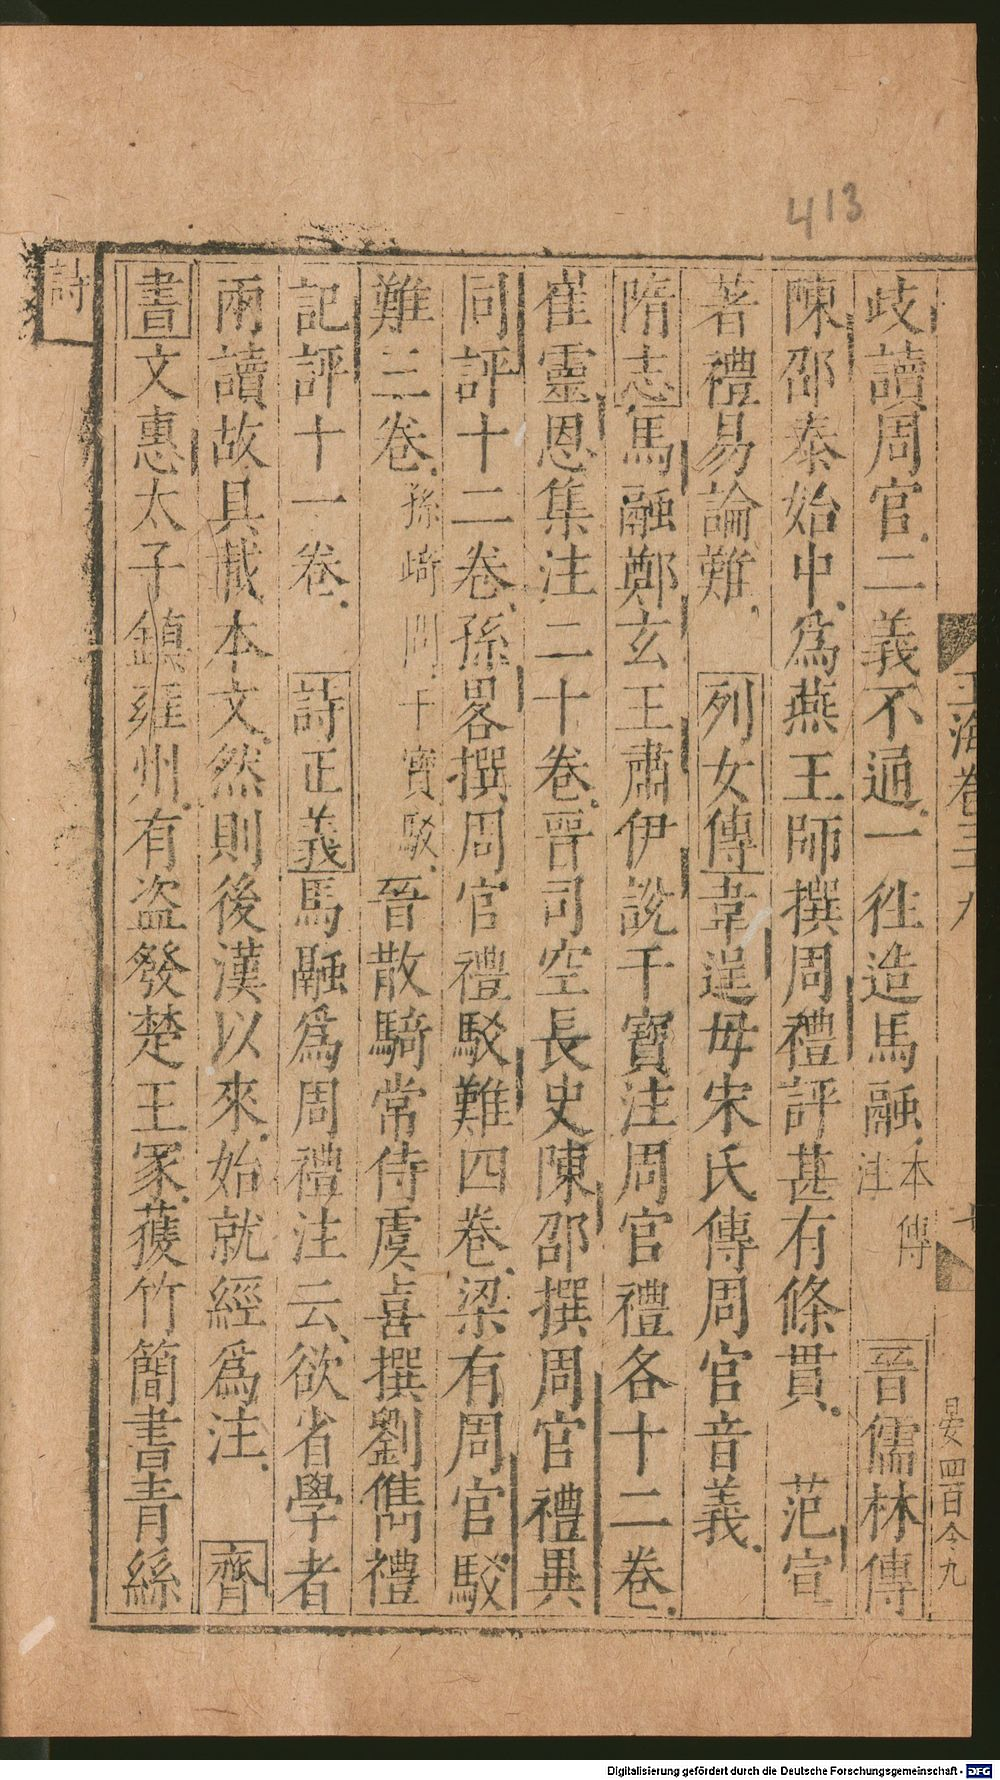 413
玉海卷三九
晏四百令九
歧讀周官二義不通一徃造馬融本傳注晉儒林傳
陳邵泰始中爲燕王師撰周禮評甚有條貫 范宣
著禮易論難 列女傳韋逞毋宋氏傳周官音義
隋志馬融鄭玄王肅伊說干寶注周官禮各十二卷
崔靈恩集注二十卷晉司空長史陳邵撰周官禮異
同評十二卷孫畧撰周官禮駁難四卷梁有周官駁
難三卷孫崎問干寳駁晉散騎常侍虞喜撰劉儁禮
記評十一卷 詩正義馬融爲周禮注云欲省學者
兩讀故具載本文然則後漢以來始就經爲注 齊
書文惠太子鎮雍州有盗發楚王冢獲竹簡書青絲
詩
Digitalisierung gefördert durch die Deutsche Forschungsgemeinschaft - DFG